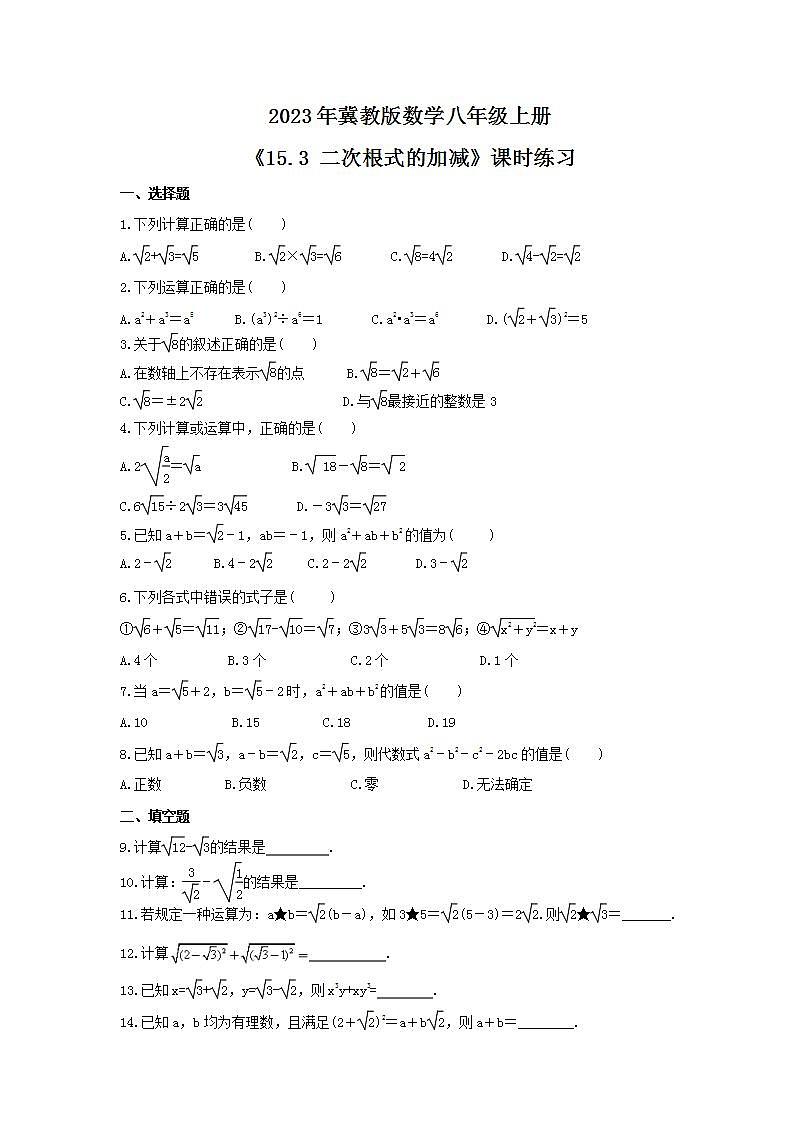 2023年冀教版数学八年级上册
《15.3 二次根式的加减》课时练习
一、选择题
1.下列计算正确的是(　　)
A.√2+√3=√5　B.√2×√3=√6　C.√8=4√2　D.√4-√2=√2
2.下列运算正确的是(　　)
A.a²＋a³＝a⁵　B.(a³)²÷a⁶＝1　C.a²•a³＝a⁶　D.(√2＋√3)²＝5
3.关于√8的叙述正确的是(　　)
A.在数轴上不存在表示√8的点　B.√8＝√2＋√6
C.√8＝±2√2　D.与√8最接近的整数是3
4.下列计算或运算中,正确的是(　　)
A.2√(a/2)＝√a　B.√18－√8＝√2
C.6√15÷2√3＝3√45　D.－3√3＝√27
5.已知a＋b＝√2﹣1,ab＝﹣1,则a²＋ab＋b²的值为(　　)
A.2﹣√2　B.4﹣2√2　C.2﹣2√2　D.3﹣√2
6.下列各式中错误的式子是(　　)
①√6＋√5＝√11;②√17-√10＝√7;③3√3＋5√3＝8√6;④√(x²＋y²)＝x＋y
A.4个　B.3个　C.2个　D.1个
7.当a＝√5＋2,b＝√5﹣2时,a²＋ab＋b²的值是(　　)
A.10　B.15　C.18　D.19
8.已知a＋b＝√3,a﹣b＝√2,c＝√5,则代数式a²﹣b²﹣c²﹣2bc的值是(　　)
A.正数　B.负数　C.零　D.无法确定
二、填空题
9.计算√12-√3的结果是_________.
10.计算:3/√2－√(1/2)的结果是_________.
11.若规定一种运算为:a★b＝√2(b－a),如3★5＝√2(5－3)＝2√2.则√2★√3＝_______.
12.计算√((2－√3)²)＋√((√3－1)²)＝___________.
13.已知x=√3+√2,y=√3-√2,则x³y+xy³=________.
14.已知a,b均为有理数,且满足(2＋√2)²＝a＋b√2,则a＋b＝________.